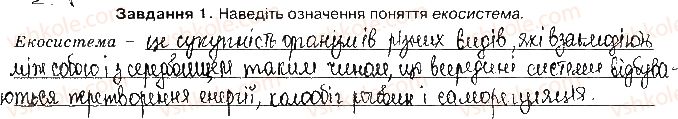 Завдання 1. Наведіть означення поняття екосистема.
Екосистема – це сукупність організмів різних видів, які взаємодіють
між собою і з середовищем таким чином, що всередині системи відбува-
ються перетворення енергії, колообіг речовин і саморегуляція.